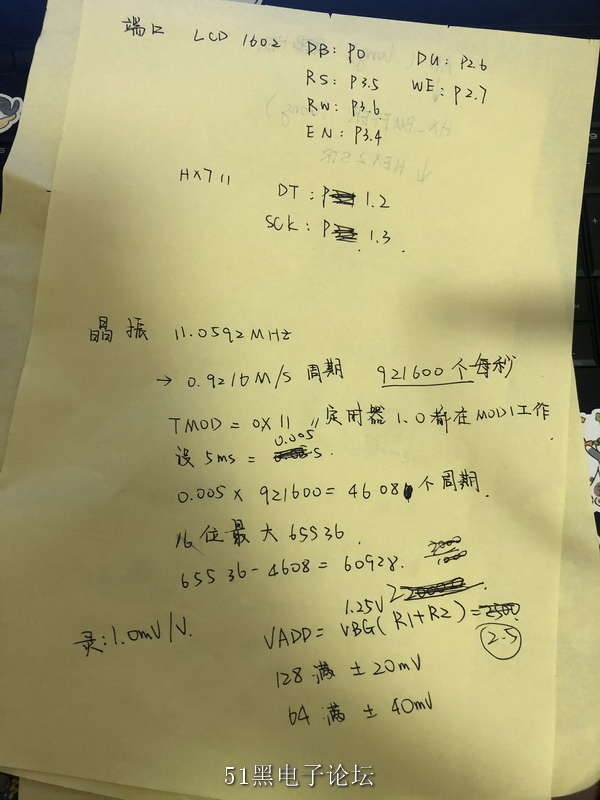 端口 LCD 1602 DB: P0 DU: P2.6
RS: P3.5 WE: P2.7
RW: P3.6
EN: P3.4
HX711 DT: P 1.2
SCK: P 1.3
晶振 11.0592MHz
→ 0.9216M/S 周期 921600个每秒
TMOD = 0X11 // 定时器 1.0 都在MOD1工作
设 5ms = 0.005 S.
0.005 × 921600 = 4608 个周期.
16位最大 65536.
65536-4608 = 60928. 2000/1000
灵: 1.0mV/V. VADD = 1.25V VBG(R1+R2) = 2.5
128 满 ± 20mV
64 满 ± 40mV
HX_BUFFER
↓ HEX2STR
51黑电子论坛